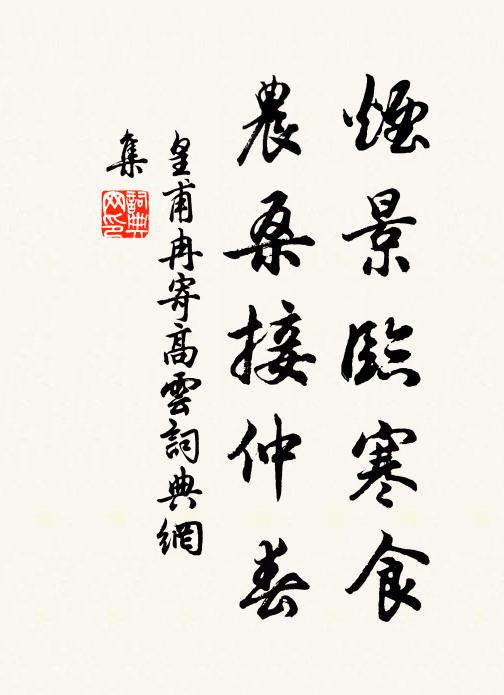 煙景臨寒食
農桑接仲春
皇甫冉寄高雲詞典網
集
詞典网印